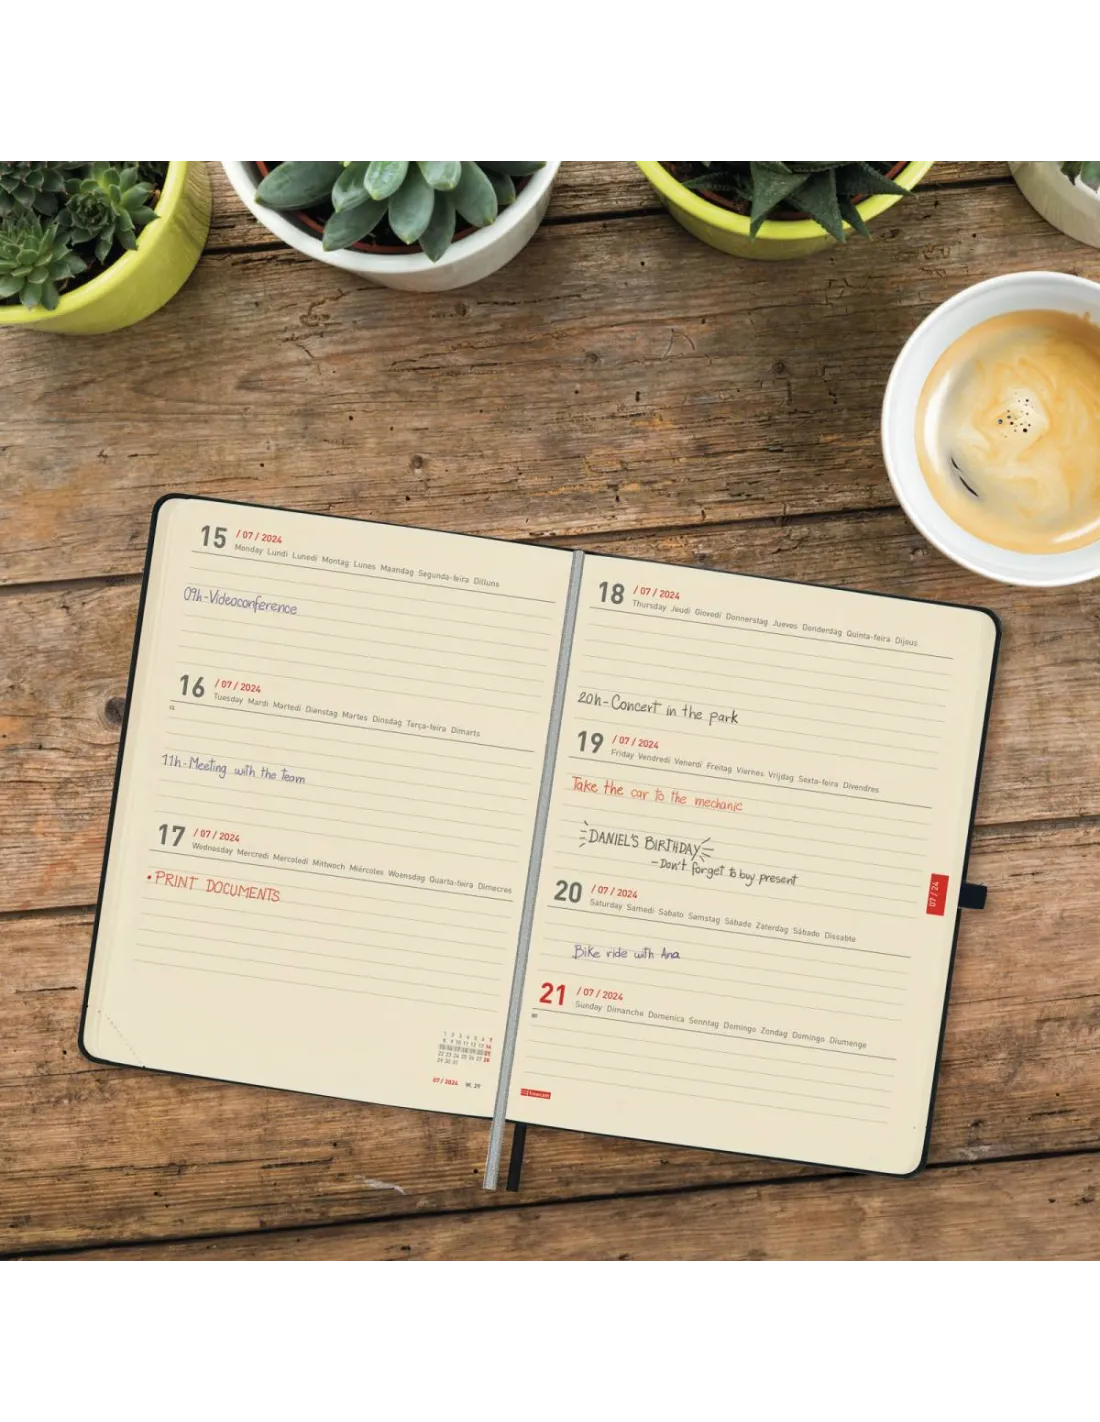 15 / 07 / 2024
Monday Lundi Lunedì Montag Lunes Maandag Segunda-feira Dilluns
09h-Videoconference
16 / 07 / 2024
Tuesday Mardi Martedì Dienstag Martes Dinsdag Terça-feira Dimarts
11h-Meeting with the team
17 / 07 / 2024
Wednesday Mercredi Mercoledì Mittwoch Miércoles Woensdag Quarta-feira Dimecres
• PRINT DOCUMENTS
1 2 3 4 5 6 7
8 9 10 11 12 13 14
15 16 17 18 19 20 21
22 23 24 25 26 27 28
29 30 31
07 / 2024 W. 29
18 / 07 / 2024
Thursday Jeudi Giovedì Donnerstag Jueves Donderdag Quinta-feira Dijous
20h-Concert in the park
19 / 07 / 2024
Friday Vendredi Venerdì Freitag Viernes Vrijdag Sexta-feira Divendres
Take the car to the mechanic
DANIEL'S BIRTHDAY
-Don't forget to buy present
20 / 07 / 2024
Saturday Samedi Sabato Samstag Sábado Zaterdag Sábado Dissabte
Bike ride with Ana
21 / 07 / 2024
Sunday Dimanche Domenica Sonntag Domingo Zondag Domingo Diumenge
07 / 24